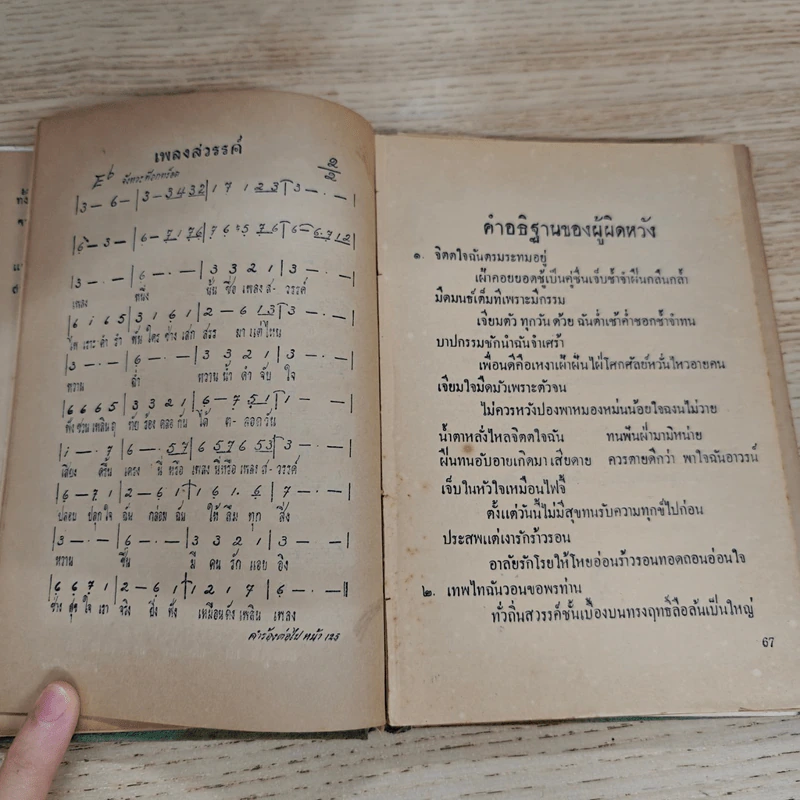 เพลงสวรรค์
Eb
2/2
|3 – 6 –|3 – 3432|1 7 1 23|3 – . –|
|6 – 3 –|6 – 7 176|7 6 5 7 6|6 – 6712|
|3 – . –|3 3 2 1|3 – . –|
เพลง หนึ่ง นั้น ชื่อ เพลง ส- วรรค์
|6 1 6 5|3 1 6 1|2 – 6 13|3 – . –|
ไพเราะ ดำ รำ พัน ใคร ช่าง เสก สรร มา แต่ไหน
|3 – . –|6 – . –|3 3 2 1|3 – . –|
หวาน ฉ่ำ หวาน น้ำ คำ จับ ใจ
|6 6 6 5|3 3 2 1|6 – 7 51|1 – . –|
|1 – . 7|6 – . 57|6 5765 53|3 – . –|
เสียง นี่ หรือ เพลง นี่หรือ เพลง ส- วรรค์
|6 – 7 1|2 – 6 1|1 6 1 . 6|7 – . –|
ปลอบ ปลุก ใจ ฉัน กล่อม ฉัน ให้ ลืม ทุก สิ่ง
|3 – . –|6 – . –|3 3 2 1|3 – . –|
หวาน ชื่น มี คน รัก แอบ อิง
|6 6 7 1|2 – 6 1|1 2 1 7|6 – . –||
ช่าง สุข ใจ เรา จริง ยิ่ง ฟัง เหมือน ดัง เพลิน เพลง
คำร้องต่อไป หน้า 125
คำอธิฐานของผู้ผิดหวัง
๑. จิตตใจฉันตรมระทมอยู่
เฝ้าคอยยอดชู้เป็นคู่ชื่นเจ็บช้ำจำฝืนกลืนกล้ำ
มืดมนธ์เต็มทีเพราะมีกรรม
เจียมตัว ทุกวัน ด้วย ฉันต่ำเช้าค่ำชอกช้ำจำทน
บาปกรรมชักนำฉันจำเศร้า
เพื่อนดีคือเหงาเฝ้าฝันไฝ่โศกศัลย์หวั่นไหวอายคน
เจียมใจมืดมัวเพราะตัวจน
ไม่ควรหวังปองพาหมองหม่นน้อยใจฉงนไม่วาย
น้ำตาหลั่งไหลจิตตใจฉัน ทนพึนฝ่ามามิหน่าย
ฝืนทนอับอายเกิดมา เสียดาย ควรตายดีกว่า พาใจฉันอาวรณ์
เจ็บในหัวใจเหมือนไฟจี้
ตั้งแต่วันนี้ไม่มีสุขทนรับความทุกข์ไปก่อน
ประสพแต่เงารักร้าวรอน
อาลัยรักโรยให้โหยอ่อนร้าวรอนทอดถอนอ่อนใจ
๒. เทพไทฉันวอนขอพรท่าน
ทั่วถิ่นสวรรค์ชั้นเบื้องบนทรงฤทธิ์ลือล้นเป็นใหญ่
67